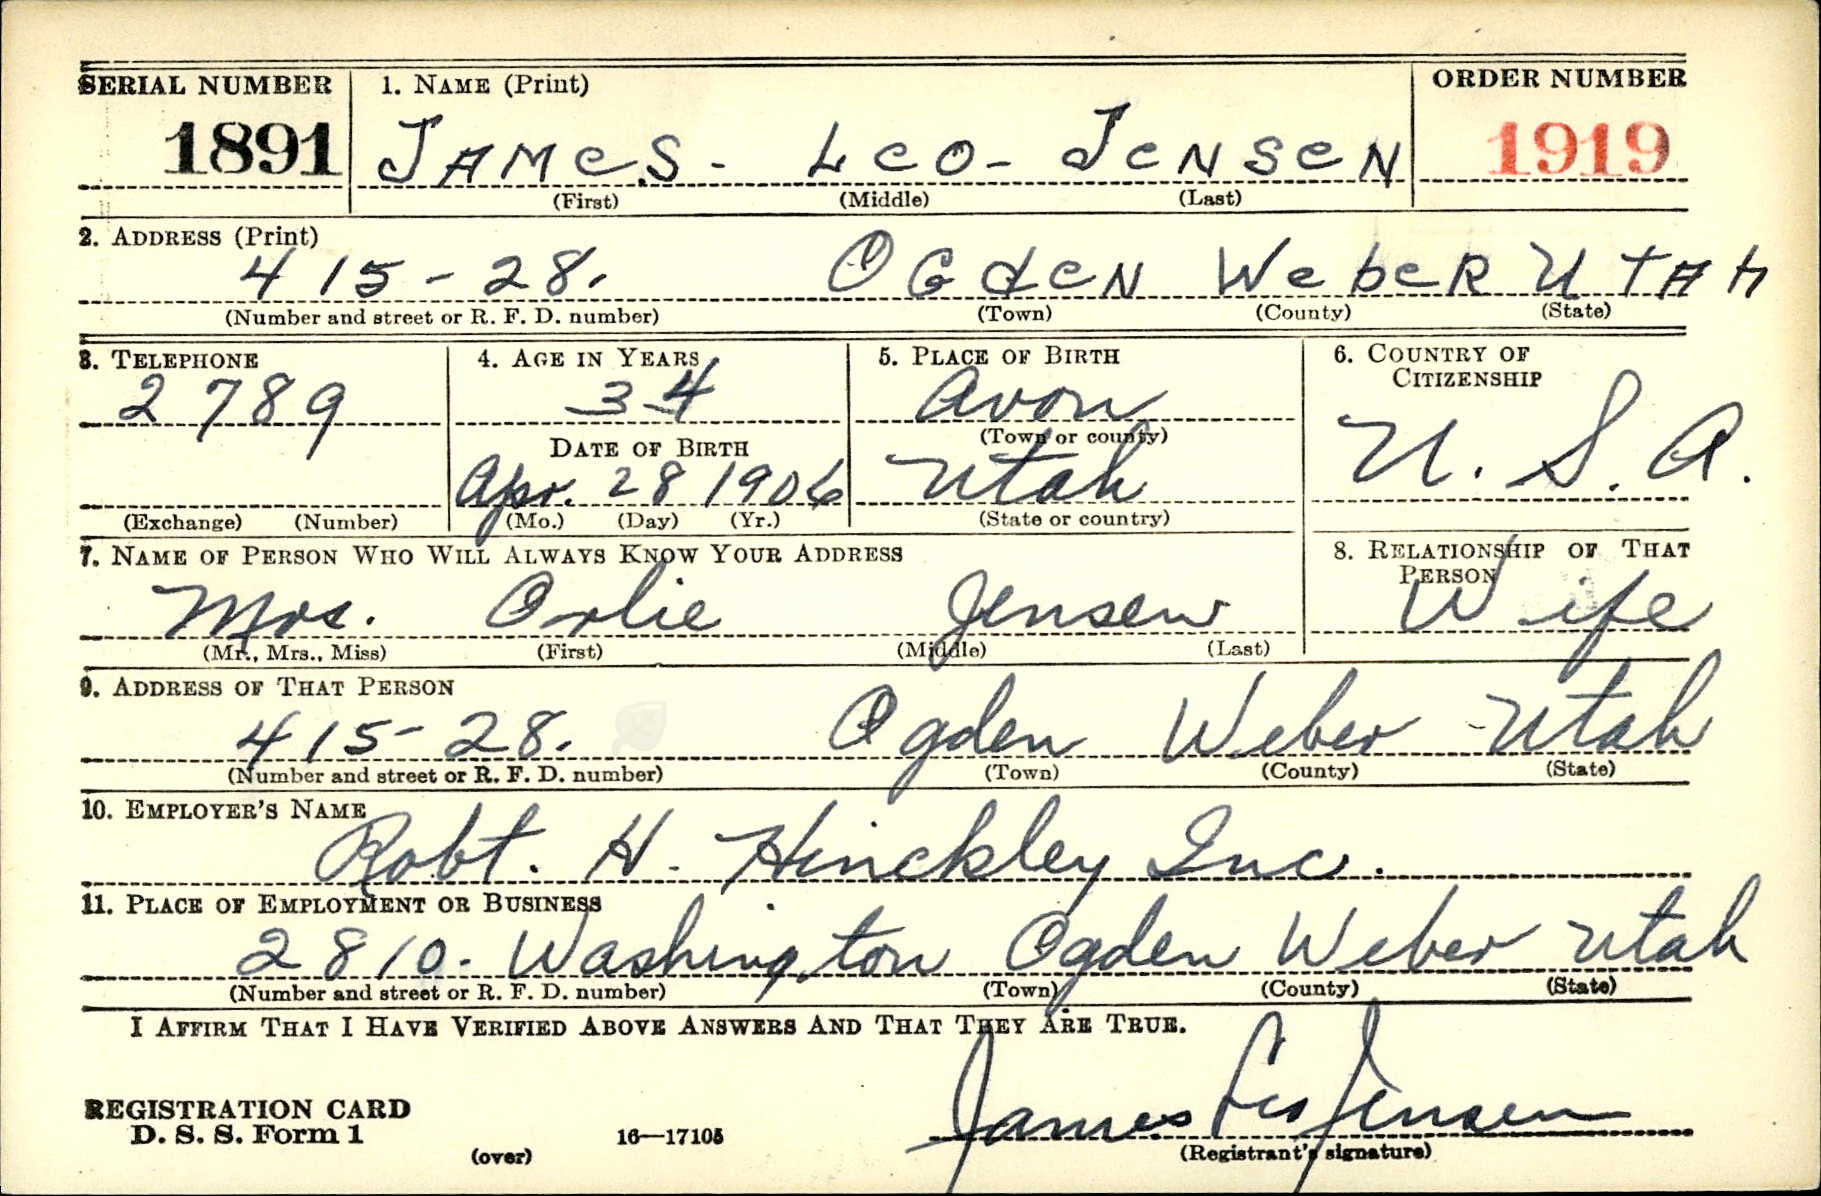 SERIAL NUMBER 1. NAME (Print) ORDER NUMBER
1891 JAMES - LEO - JENSEN 1919
(First) (Middle) (Last)
2. ADDRESS (Print)
415 - 28. OGDEN WEBER UTAH
(Number and street or R. F. D. number) (Town) (County) (State)
3. TELEPHONE 4. AGE IN YEARS 5. PLACE OF BIRTH 6. COUNTRY OF CITIZENSHIP
2789 34 Avon
(Town or county)
DATE OF BIRTH U. S. A.
Apr. 28 1906 Utah
(Exchange) (Number) (Mo.) (Day) (Yr.) (State or country)
7. NAME OF PERSON WHO WILL ALWAYS KNOW YOUR ADDRESS 8. RELATIONSHIP OF THAT PERSON
Mrs. Orlie Jensen Wife
(Mr., Mrs., Miss) (First) (Middle) (Last)
9. ADDRESS OF THAT PERSON
415 - 28. Ogden Weber Utah
(Number and street or R. F. D. number) (Town) (County) (State)
10. EMPLOYER'S NAME
Robt. H. Hinckley Inc.
11. PLACE OF EMPLOYMENT OR BUSINESS
2810. Washington Ogden Weber Utah
(Number and street or R. F. D. number) (Town) (County) (State)
I AFFIRM THAT I HAVE VERIFIED ABOVE ANSWERS AND THAT THEY ARE TRUE.
James Leo Jensen
REGISTRATION CARD
D. S. S. Form 1 16—17105
(over) (Registrant's signature)